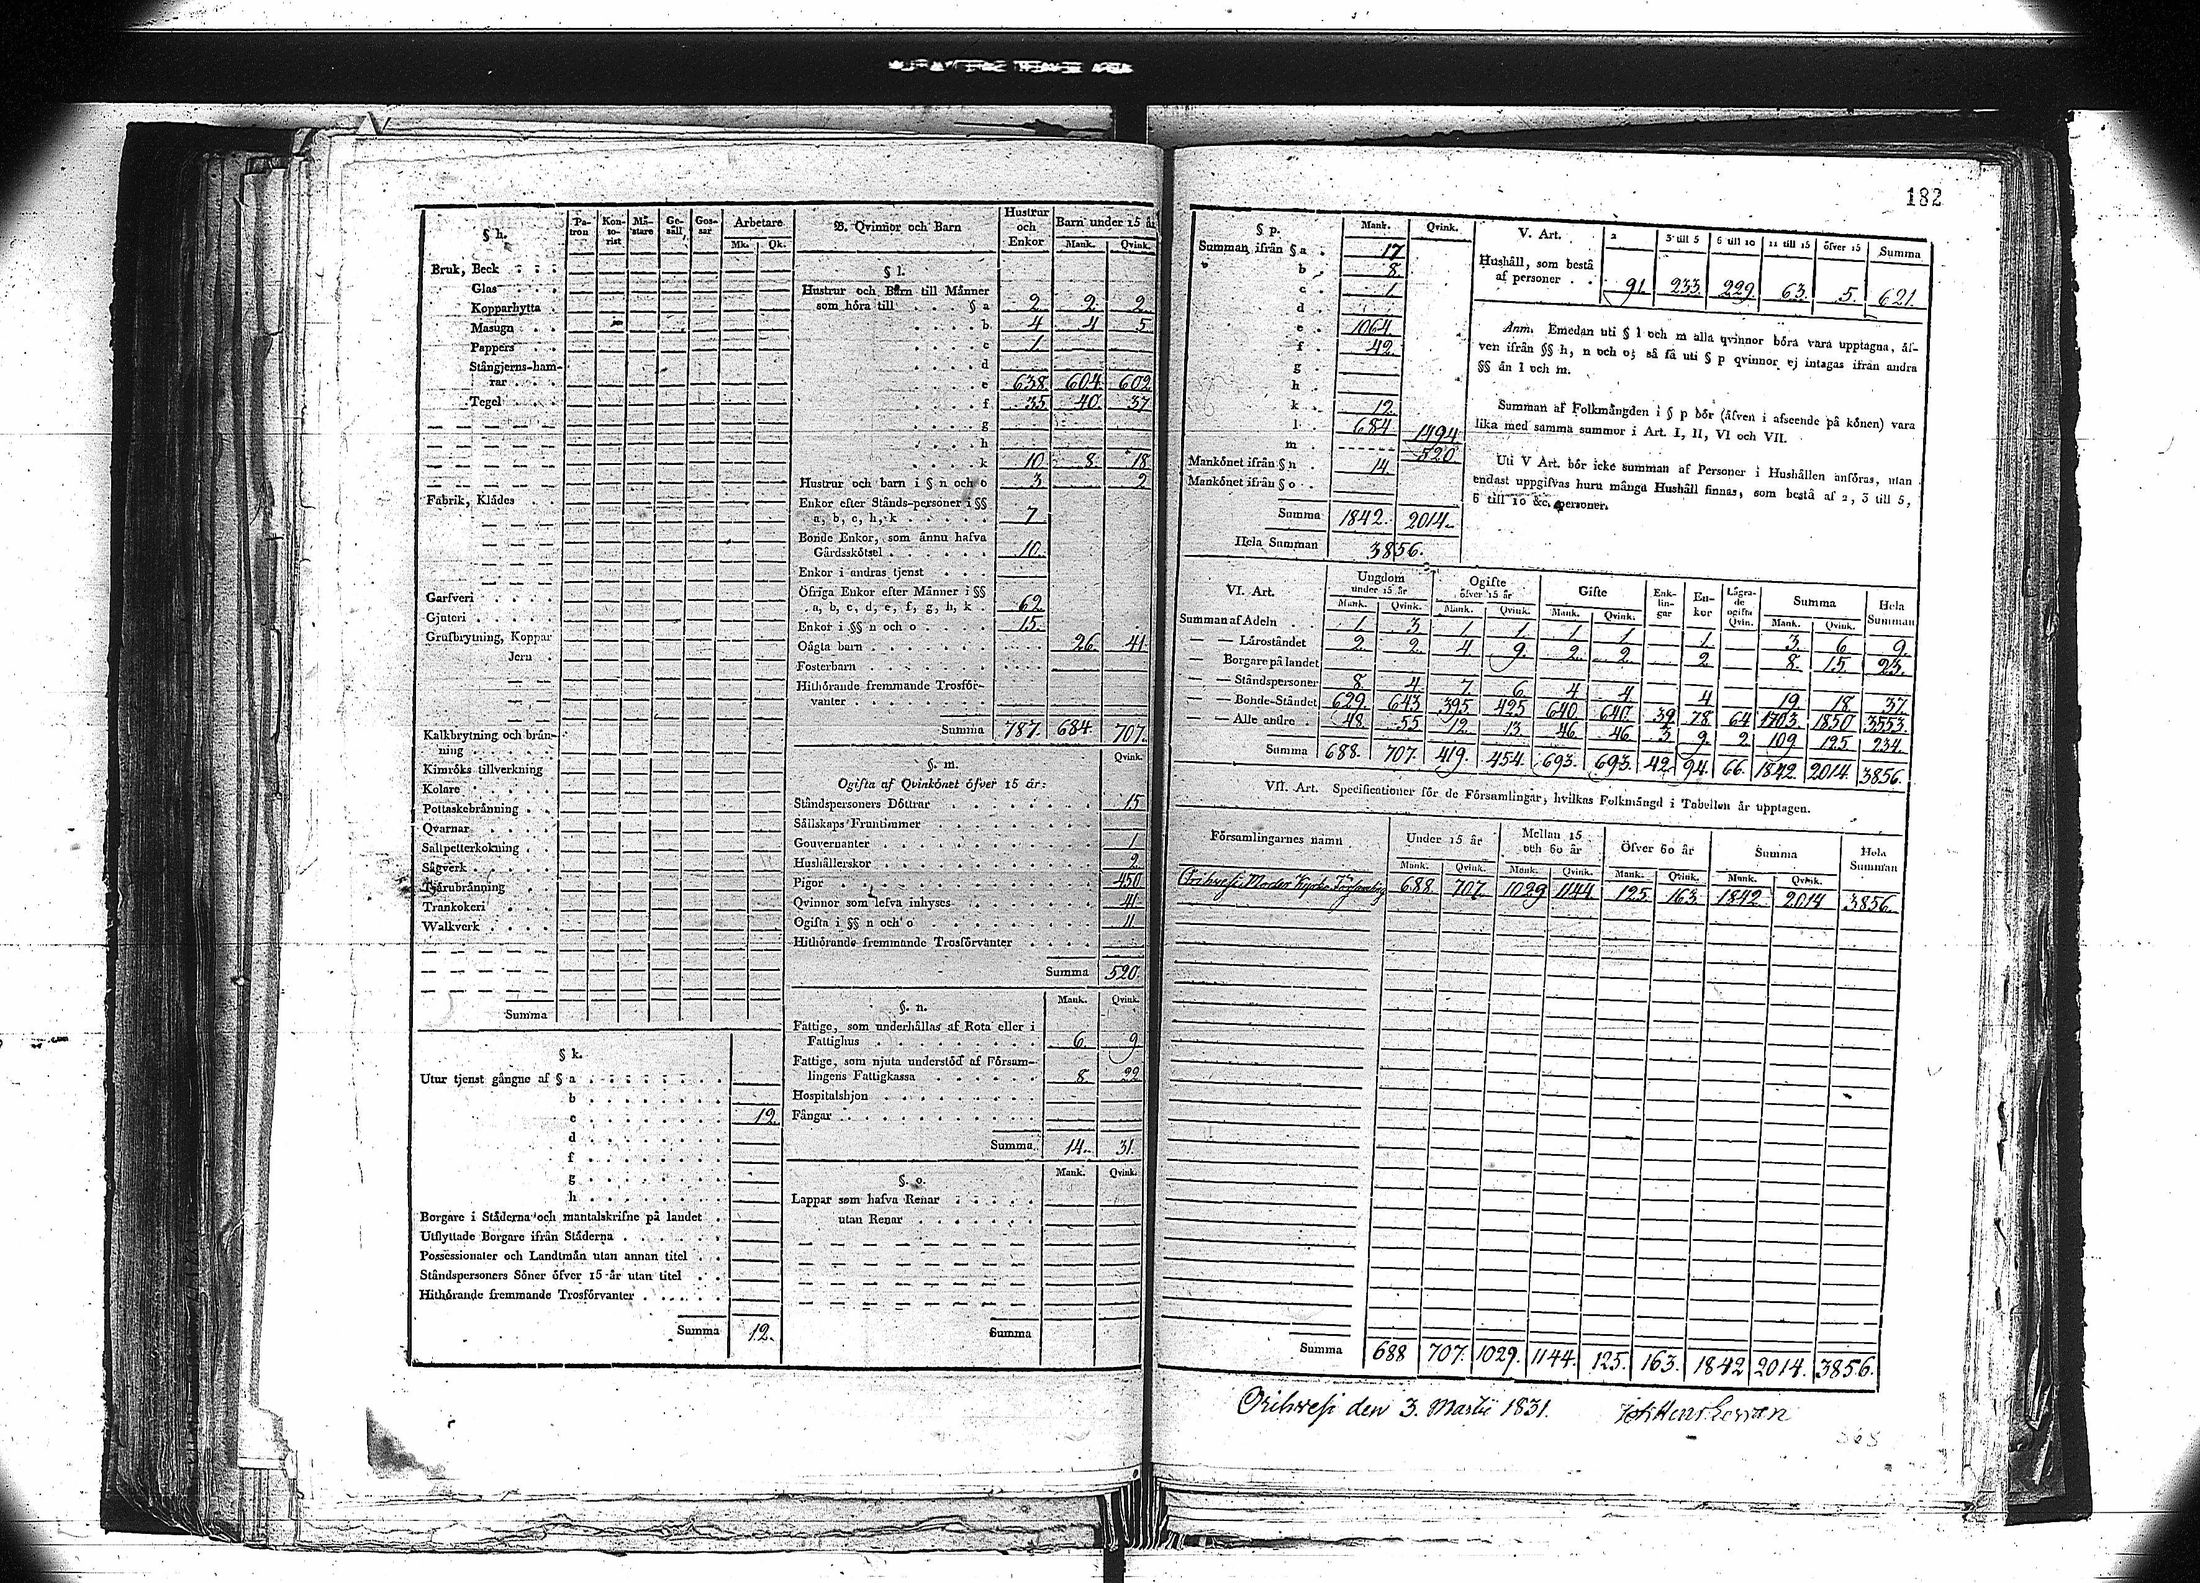 182
§ h.
Pa-tron Kon-to-rist Mä-stare Ge-säll Gos-sar Arbetare
Mk. Qk.
Bruk, Beck
Glas
Kopparhytta
Masugn
Pappers
Stångjerns-ham-
rar
Tegel
Fabrik, Klädes
Garfveri
Gjuteri
Grufbrytning, Koppar
Jern
Kalkbrytning och brän-
ning
Kimröks tillverkning
Kolare
Pottaskebränning
Qvarnar
Saltpetterkokning
Sågverk
Tjärubränning
Trankokeri
Walkverk
Summa
§ k.
Utur tjenst gångne af § a
b
c 12.
d
f
g
h
Borgare i Städerna och mantalskrifne på landet
Utflyttade Borgare ifrån Städerna
Possessionater och Landtmän utan annan titel
Ståndspersoners Söner öfver 15 år utan titel
Hithörande fremmande Trosförvanter
Summa 12.
B. Qvinnor och Barn Hustrur och Enkor Barn under 15 år
Mank. Qvink.
§ l.
Hustrur och Barn till Männer
som höra till § a 2 2 2
b 4 4 5
c 1
d
e 638 604 602
f 35 40 37
g
h
k 10 8 18
Hustrur och barn i § n och o 3 2
Enkor efter Stånds-personer i §§
a, b, c, h, k 7
Bonde Enkor, som ännu hafva
Gårdsskötsel 10.
Enkor i andras tjenst
Öfriga Enkor efter Männer i §§
a, b, c, d, e, f, g, h, k 62
Enkor i §§ n och o 15.
Oägta barn 26 41
Fosterbarn
Hithörande fremmande Trosför-
vanter
Summa 787. 684. 707.
§. m. Qvink.
Ogifta af Qvinkönet öfver 15 år:
Ståndspersoners Döttrar 15
Sällskaps Fruntimmer
Gouvernanter 1
Hushållerskor 2
Pigor 450
Qvinnor som lefva inhyses 41
Ogifta i §§ n och o 11
Hithörande fremmande Trosförvanter
Summa 520
§. n. Mank. Qvink.
Fattige, som underhållas af Rota eller i
Fattighus 6 9
Fattige, som njuta understöd af Försam-
lingens Fattigkassa 8 22
Hospitalshjon
Fångar
Summa 14. 31.
§. o. Mank. Qvink.
Lappar som hafva Renar
utan Renar
Summa
§ p. Mank. Qvink.
Summan ifrån § a 17
b 8
c 1
d
e 1064
f 42
g
h
k 12
l 684 1494
m 520
Mankönet ifrån § n 14
Mankönet ifrån § o
Summa 1842. 2014.
Hela Summan 3856.
V. Art. 2 3 till 5 6 till 10 11 till 15 öfver 15 Summa
Hushåll, som bestå
af personer 91 233. 229. 63. 5. 621.
Anm. Emedan uti § l och m alla qvinnor böra vara upptagna, äf-
ven ifrån §§ h, n och o; så få uti § p qvinnor ej intagas ifrån andra
§§ än l och m.
Summan af Folkmängden i § p bör (äfven i afseende på könen) vara
lika med samma summor i Art. I, II, VI och VII.
Uti V Art. bör icke summan af Personer i Hushållen anföras, utan
endast uppgifvas huru många Hushåll finnas, som bestå af 2, 3 till 5,
6 till 10 &c. personer.
VI. Art. Ungdom under 15 år Ogifte öfver 15 år Gifte Enk-lin-gar En-kor Lägra-de ogifta Qvin. Summa Hela Summan
Mank. Qvink. Mank. Qvink. Mank. Qvink. Mank. Qvink.
Summan af Adeln 1 3 1 1 1 1 1 3 6 9.
— — Läroståndet 2 2 4 9. 2 2 2 8 15 23.
— Borgare på landet
— — Ståndspersoner 8 4 7 6 4 4 4 19 18 37
— — Bonde-Ståndet 629 643 395 425 640 640 39 78 64 1703 1850 3553
— — Alle andre 48 55 12 13 46 46 3 9 2 109 125 234
Summa 688. 707. 419. 454. 693. 693. 42. 94. 66. 1842 2014. 3856.
VII. Art. Specificationer för de Församlingar, hvilkas Folkmängd i Tabellen är upptagen.
Församlingarnes namn Under 15 år Mellan 15 och 60 år Öfver 60 år Summa Hela Summan
Mank. Qvink. Mank. Qvink. Mank. Qvink. Mank. Qvink.
Orihvesi Moder Kyrko Församling 688 707 1029 1144 125 163 1842 2014 3856
Summa 688 707. 1029. 1144. 125. 163. 1842 2014. 3856.
Orihvesi den 3. Martii 1831.